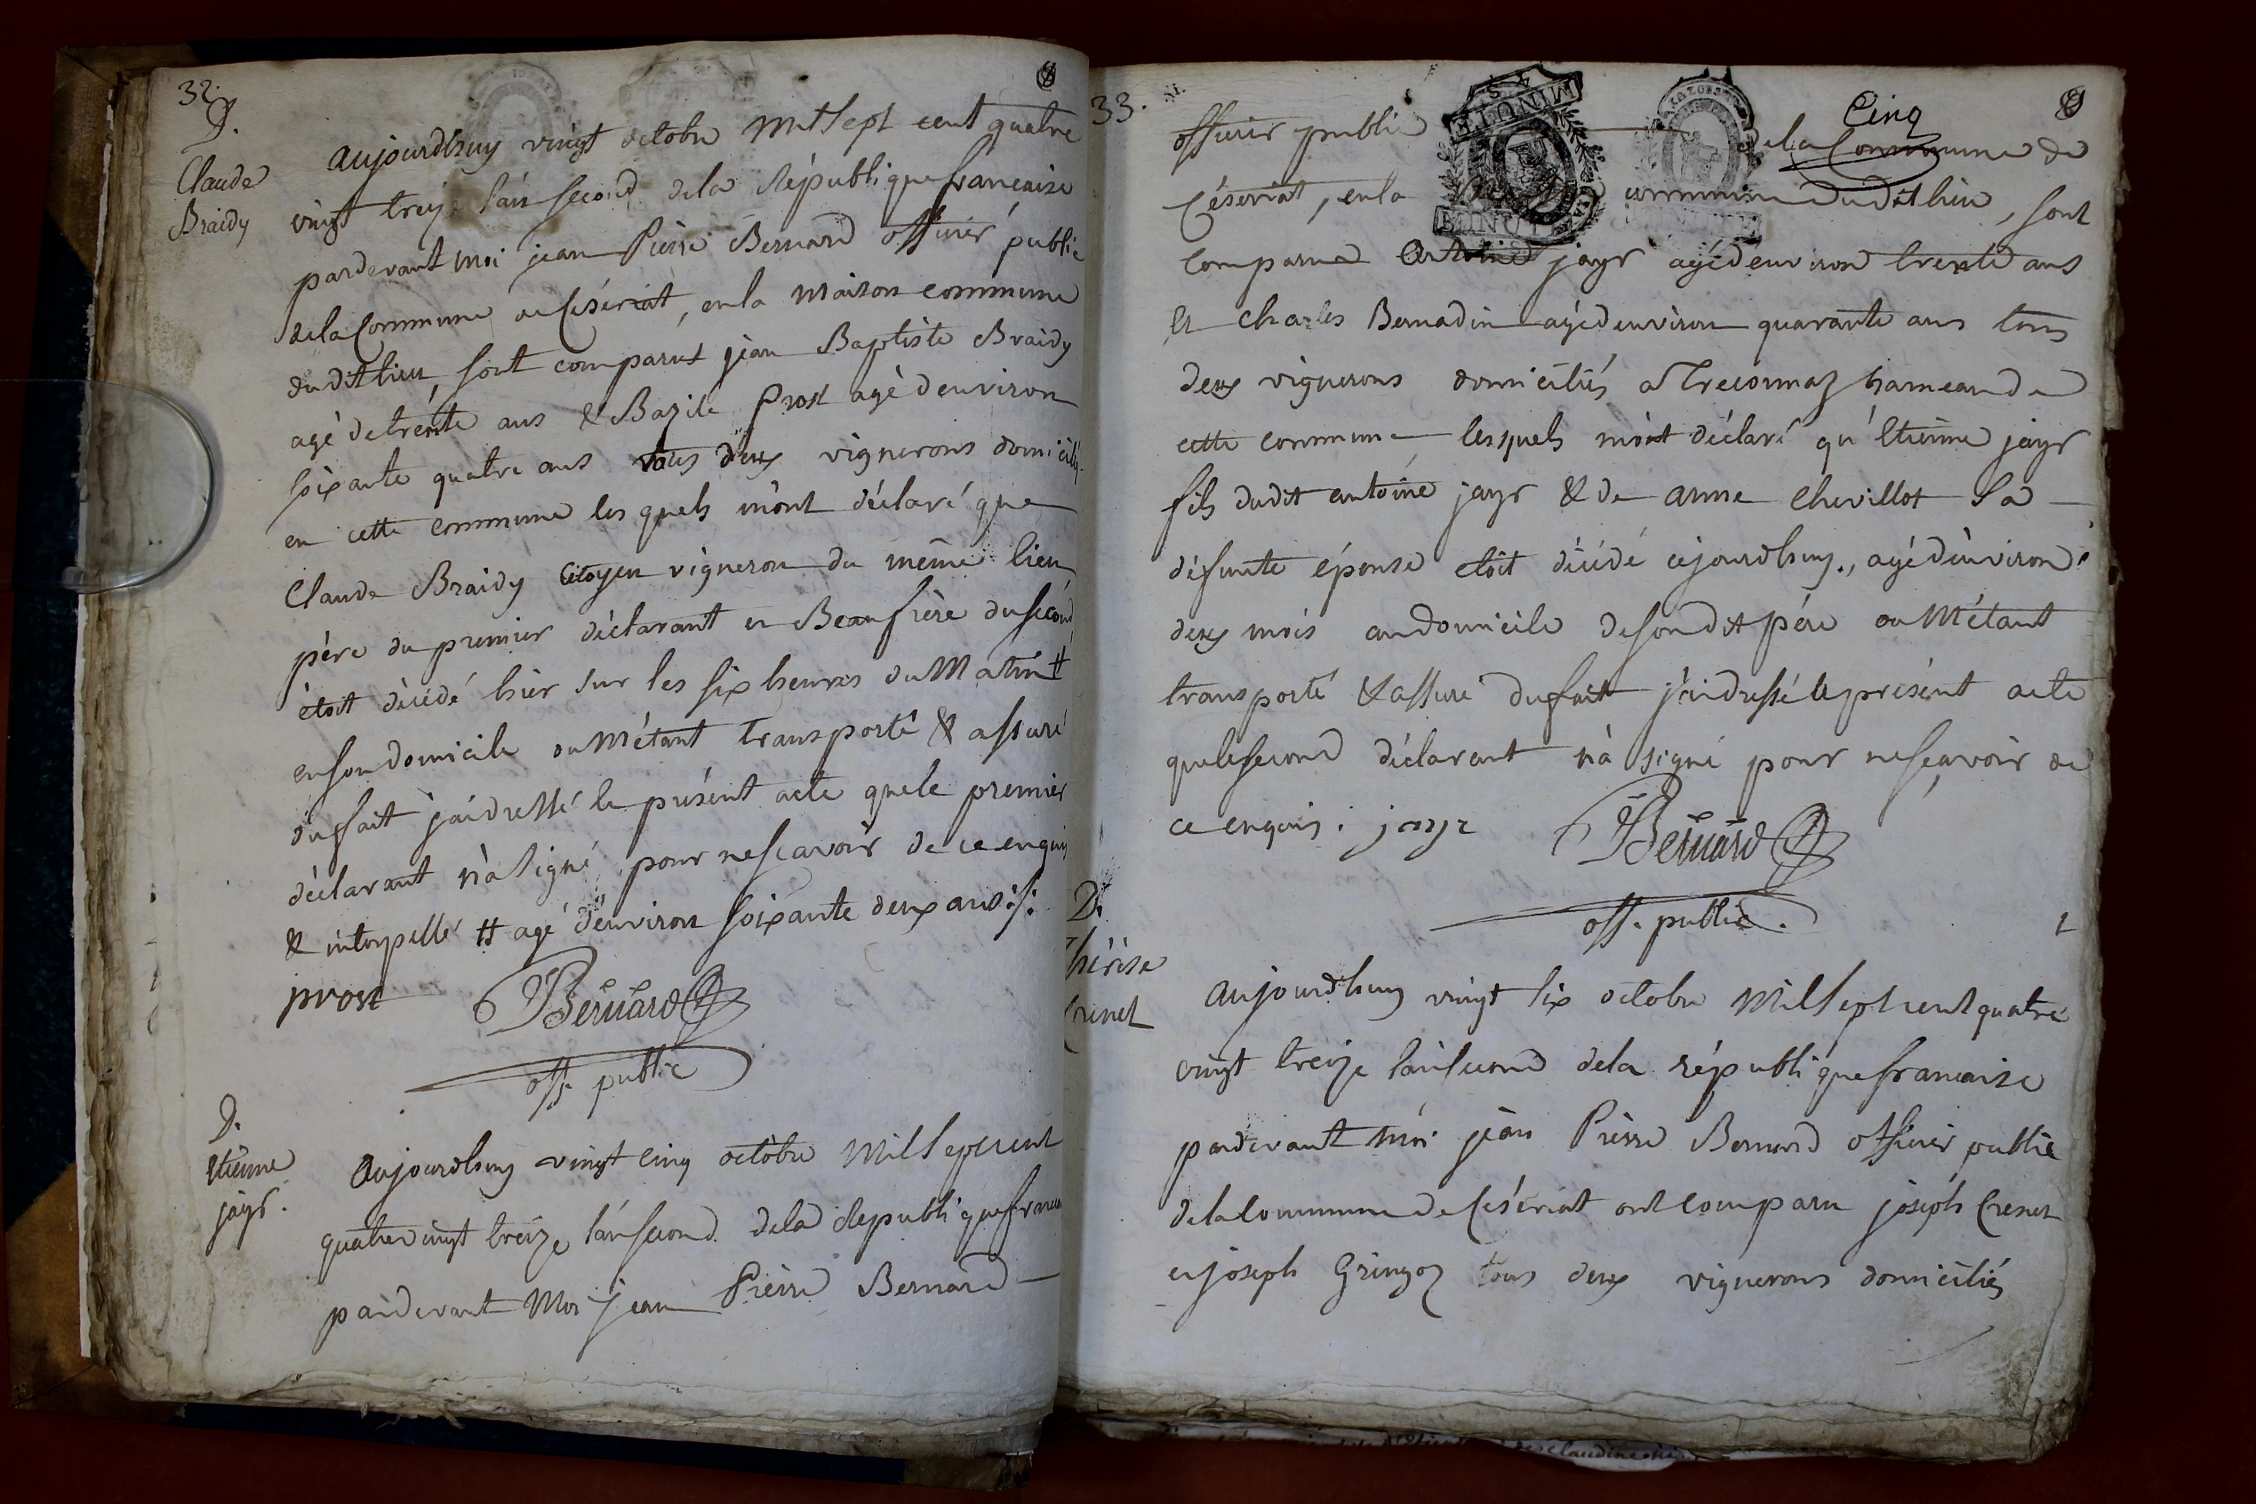 32.
D.
Claude
Braidy
aujourdhuy vingt octobre mil sept cent quatre
vingt treize l'an second de la République francaise
pardevant moi jean Pierre Bernard officier public
de la Commune de Céseriat, en la maison commune
dudit lieu, sont comparus jean Baptiste Braidy
agé de trente ans & Bazile Prost agé d'environ
soixante quatre ans tous deux vignerons domiciliés
en cette commune lesquels m'ont déclaré que
Claude Braidy Citoyen vigneron du même lieu
père du premier déclarant et Beaufrère du second
étoit décédé hier sur les six heures du Matin #
en son domicile ou M'étant transporté & assuré
du fait j'ai dressé le présent acte que le premier
déclarant n'a signé pour ne scavoir de ce enquis
& interpellé # agé d'environ soixante deux ans ./.
prost Bernard
off. public
D.
etienne
jayr.
Aujourdhuy vingt cinq octobre Mil Sept cent
quatre vingt treize l'an second de la République francaise
pardevant Moi jean Pierre Bernard
33.
Cinq
officier public de la Commune de
Céseriat, en la commune dudit lieu, sont
comparus Antoine jayr agé d'environ trente ans
et Charles Bernadin agé d'environ quarante ans tous
deux vignerons domiciliés a Treconnaz hameau de
cette commune lesquels m'ont déclaré qu'Etienne jayr
fils dudit antoine jayr & de anne Chevillot sa
défunte épouse etoit décédé cejourdhuy, agé d'environ
deux mois au domicile de son dit père ou M'étant
transporté & assuré du fait j'ai dressé le présent acte
que le second déclarant n'a signé pour ne sçavoir de
ce enquis. jayr Bernard
off. public.
D.
thérèse
Crenet
Aujourdhuy vingt six octobre Mil Sept cent quatre
vingt treize l'an second de la république francaise
pardevant moi jean Pierre Bernard officier public
de la Commune de Céseriat ont comparu joseph Crenet
et joseph Gringoz tous deux vignerons domiciliés